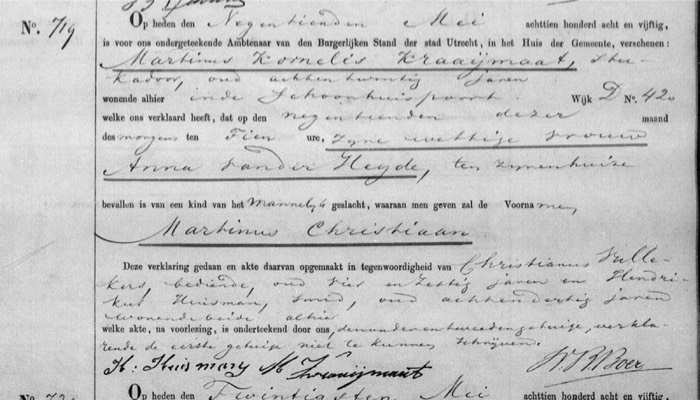 N°. 719
Op heden den Negentienden Mei achttien honderd acht en vijftig,
is voor ons ondergeteekende Ambtenaar van den Burgerlijken Stand der stad Utrecht, in het Huis der Gemeente, verschenen:
Martinus Kornelis Kraaijmaat, stu-
kadoor, oud achtentwintig jaren
wonende alhier in de Schoonhuispoort Wijk D N°. 420
welke ons verklaard heeft, dat op den negentienden dezer maand
des morgens ten Tien ure, zyne wettige vrouw
Anna van der Heyde, ten zynenhuize
bevallen is van een kind van het Mannelyk geslacht, waaraan men geven zal de Voornamen
Martinus Christiaan
Deze verklaring gedaan en akte daarvan opgemaakt in tegenwoordigheid van Christianus
kers, bediende, oud vier en zestig jaren en Hendri-
kus Huisman, smid, oud achtendertig jaren
wonende beide alhier
welke akte, na voorlezing, is onderteekend door ons, den vader en tweeden getuige, verkla-
rende de eerste getuige niet te kunnen schrijven.
H: Huisman M K Kraaijmaat Boer
Op heden den Twintigsten Mei achttien honderd acht en vijftig,